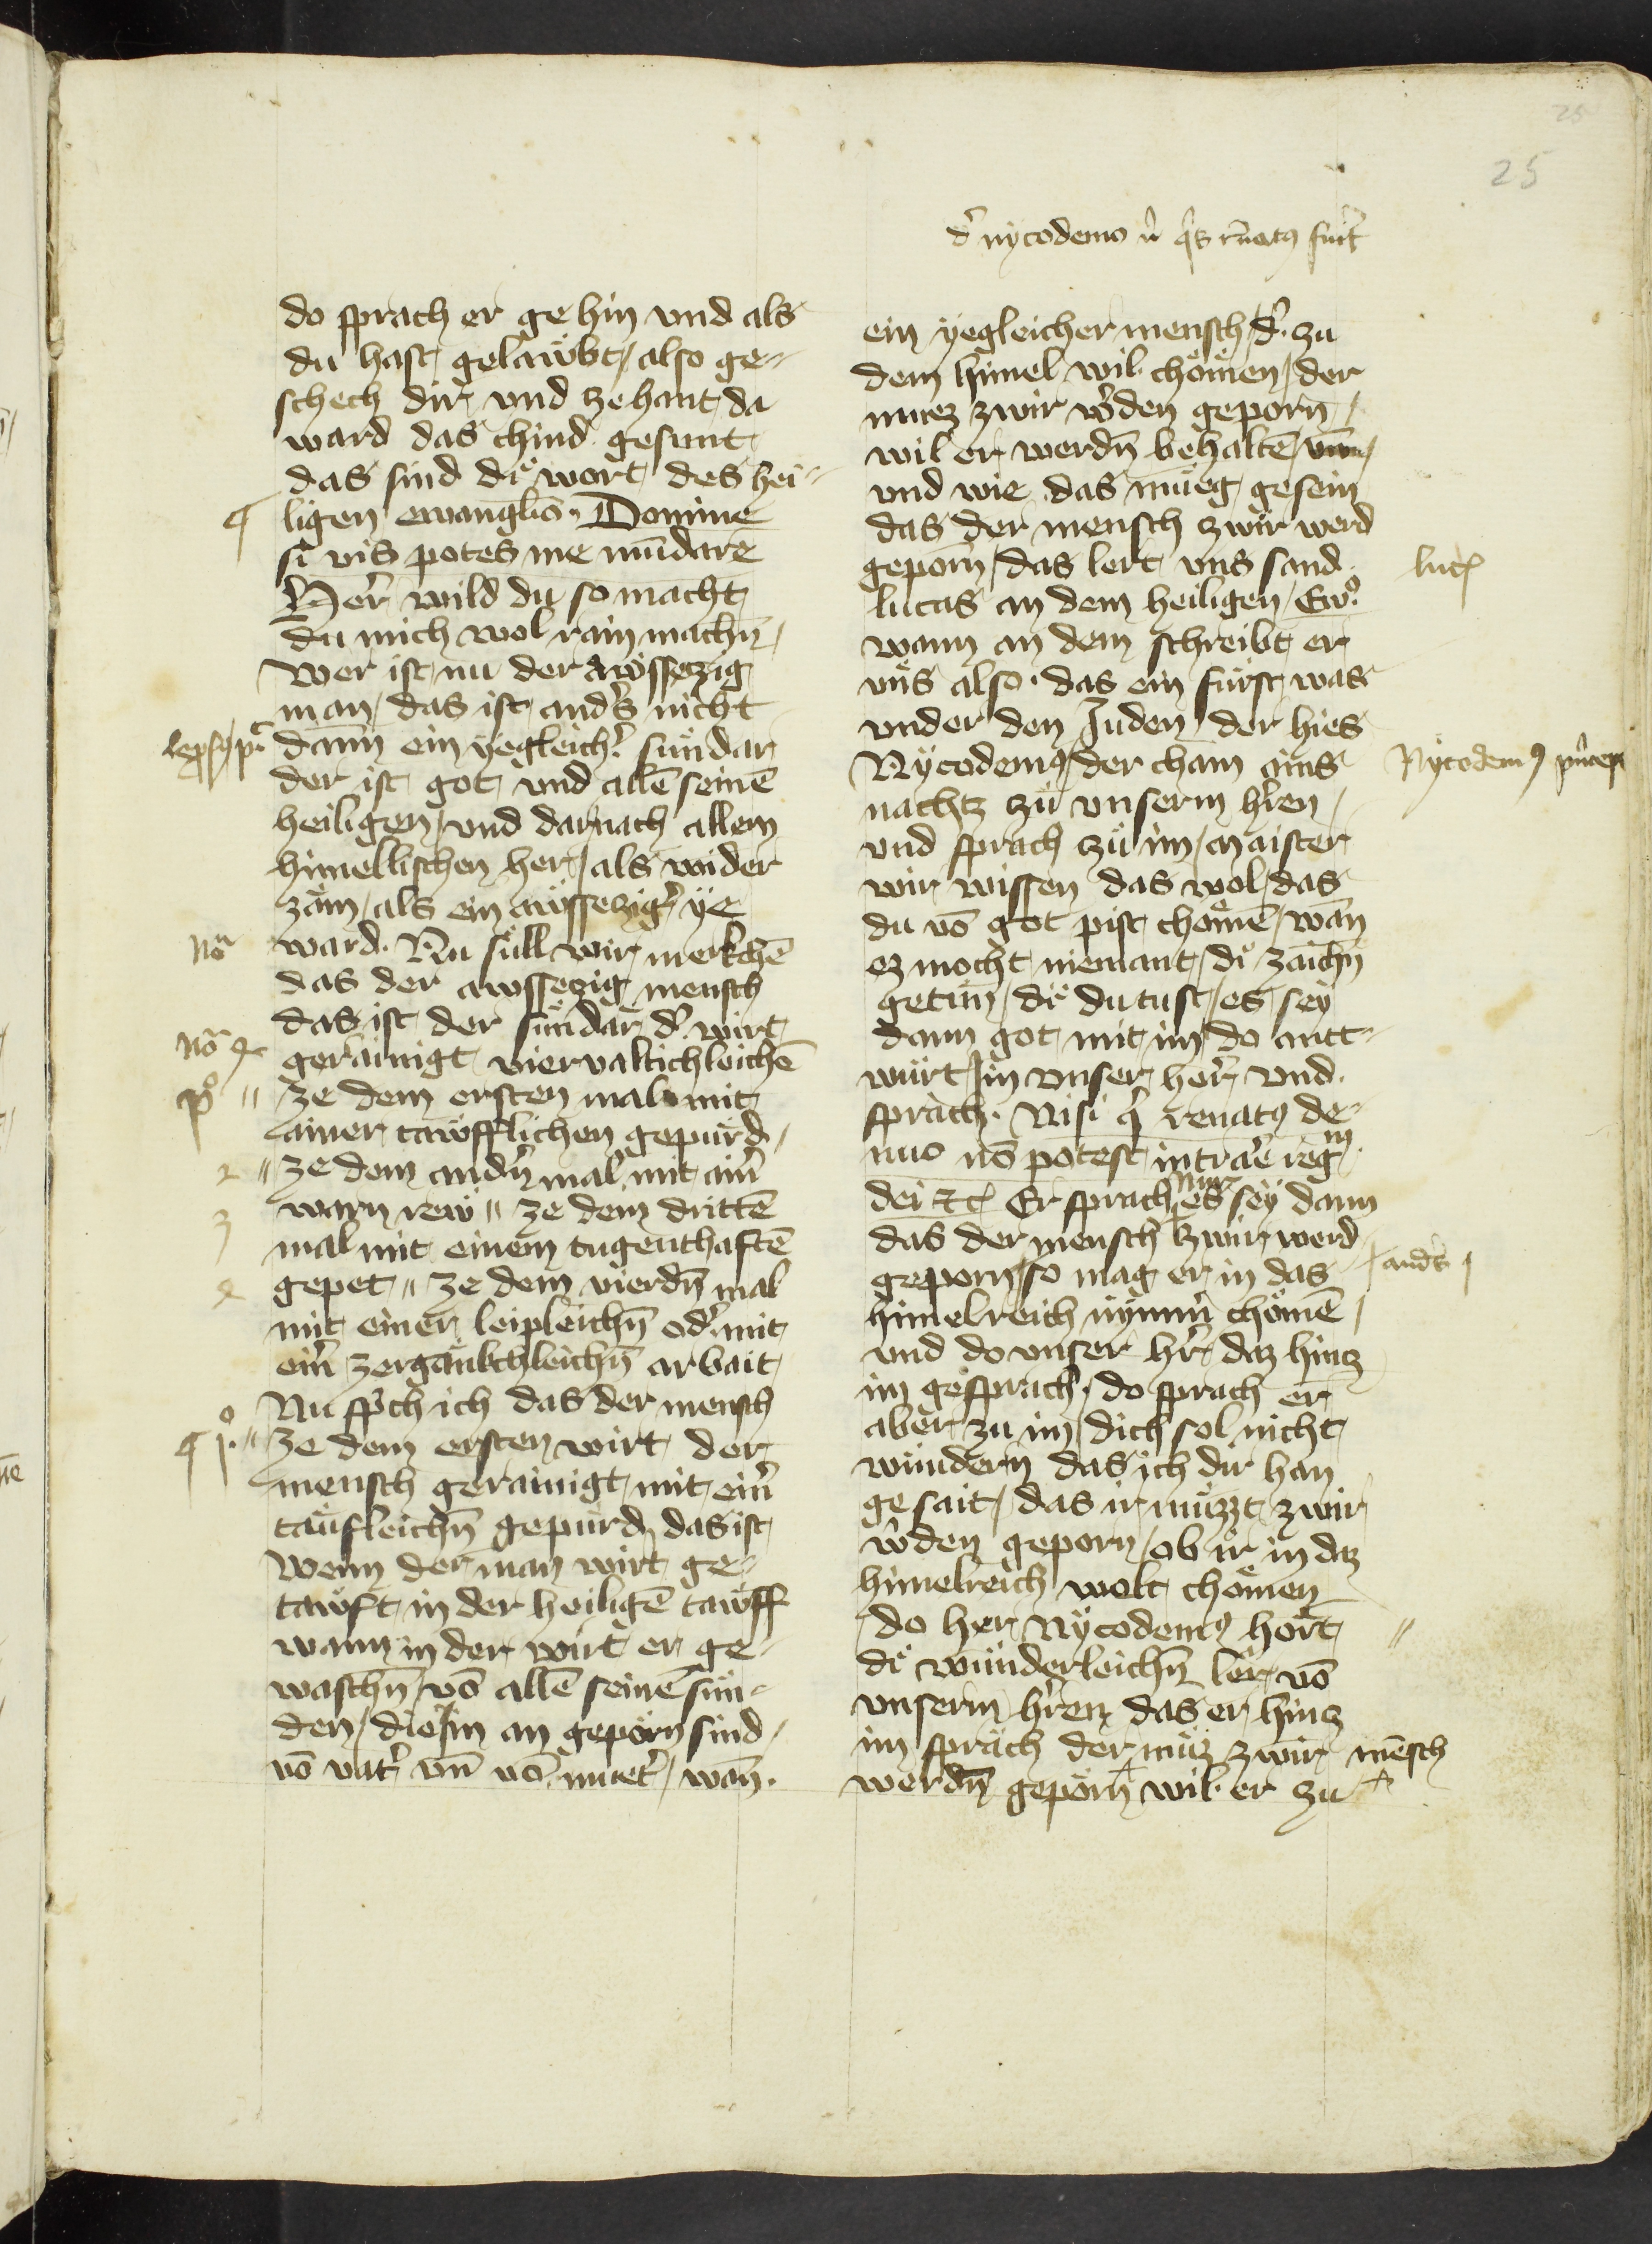 25
25
d̾ nycodemo n̾ q̾s r̄natꝯ fu̾it
do sprach er ge hin vnd als
du hast gelawbt / also ge⸗
schech dir vnd ze hant da
ward das chind gesunt
das sind di wort des hei⸗
ligen ewanglio. Domine
si vis potes me mūdare
Her wild du so macht
du mich wol rain machn̄ /
Wer ist nu der awssezig
man / das ist and̾s nicht
dann ein yegleich̾ sündar
der ist got vnd allē seinē
heiligen / vnd darnach allem
himelischen her / als wider
zäm / als ein awssezig̾ ye
ward. Nu süll wir merkchē
das der awssezig mensch
das ist der sündar d̾ wirt
gerainigt viervaltichleichē
ze dem ersten mal mit
ainer tawfflichen gepürd /
ze dem andn̄ mal mit ain̾
warn rew ⸗ ze dem drittē
mal mit einem tugenthaftē
gepet ⸗ ze dem vierdn̄ mal
mit einer leipleichn̄ od̾ mit
ein̾ zergänkchleichn̄ arbait
Nu sp̾ch ich das der mensch
ze dem ersten wirt der
mensch gerainigt mit ein̾
taufleichn̄ gepürd das ist
Wenn der man wirt ge⸗
tawft in der heiligē tawff
wann in der wirt er ge⸗
waschn̄ / vō allē seinē sün⸗
den / die Im an geporn sind /
vō vat̾ vn̄ vō muet̾ / wān.
¶
lepsꝯ p̾c
Nō
Nō 4
po
2
3
4
¶ 1o
ein yegleicher mensch / d̾ zu
dem himel wil chömen / der
muez zwir w̾den geporn /
wil er werdn̄ behaltē /
vnd wie das müeg gesein
das der mensch zwir werd
geporn / das lert vns sand
lucas an dem heiligen / Ewo
wann an dem schreibt er
vns also. das ein fürst was
vnder den Juden / der hies
Nycodemꝯ / der cham ains
nachtz zu vnserm h̾ren /
vnd sprach zu im / maister
wir wissen das wol / das
du vō got pist chömē / wān
ez mocht niemant / di zaichn̄
getun / di du tust / es sey
dann got mit im / do antt⸗
würt Im vnser her vnd
sprach. Nisi q̾ renatꝯ de⸗
nuo nō potest intrare regm
dei ⁊c̄ Er sprach nur es sey dann
das der mensch zwir werd
geporn / so mag er in das
himelreich nymm̾ chömē /
vnd do vnser h̾r daz hincz
im gesprach. do sprach er
aber zu im / dich sol nicht
wundern das ich dir han
gesait / das ir müzzt zwir
w̾den geporn / ob ir in daz
himelreich welt chömen
do her Nycodemꝯ hort
di wunderleichn̄ ler vō
vnserm h̾ren das er hincz
im sprach der müz zwir mēsch
werdn̄ geporn wil er zu
luc̄
Nycodemꝯ p̾ncep
and̾s